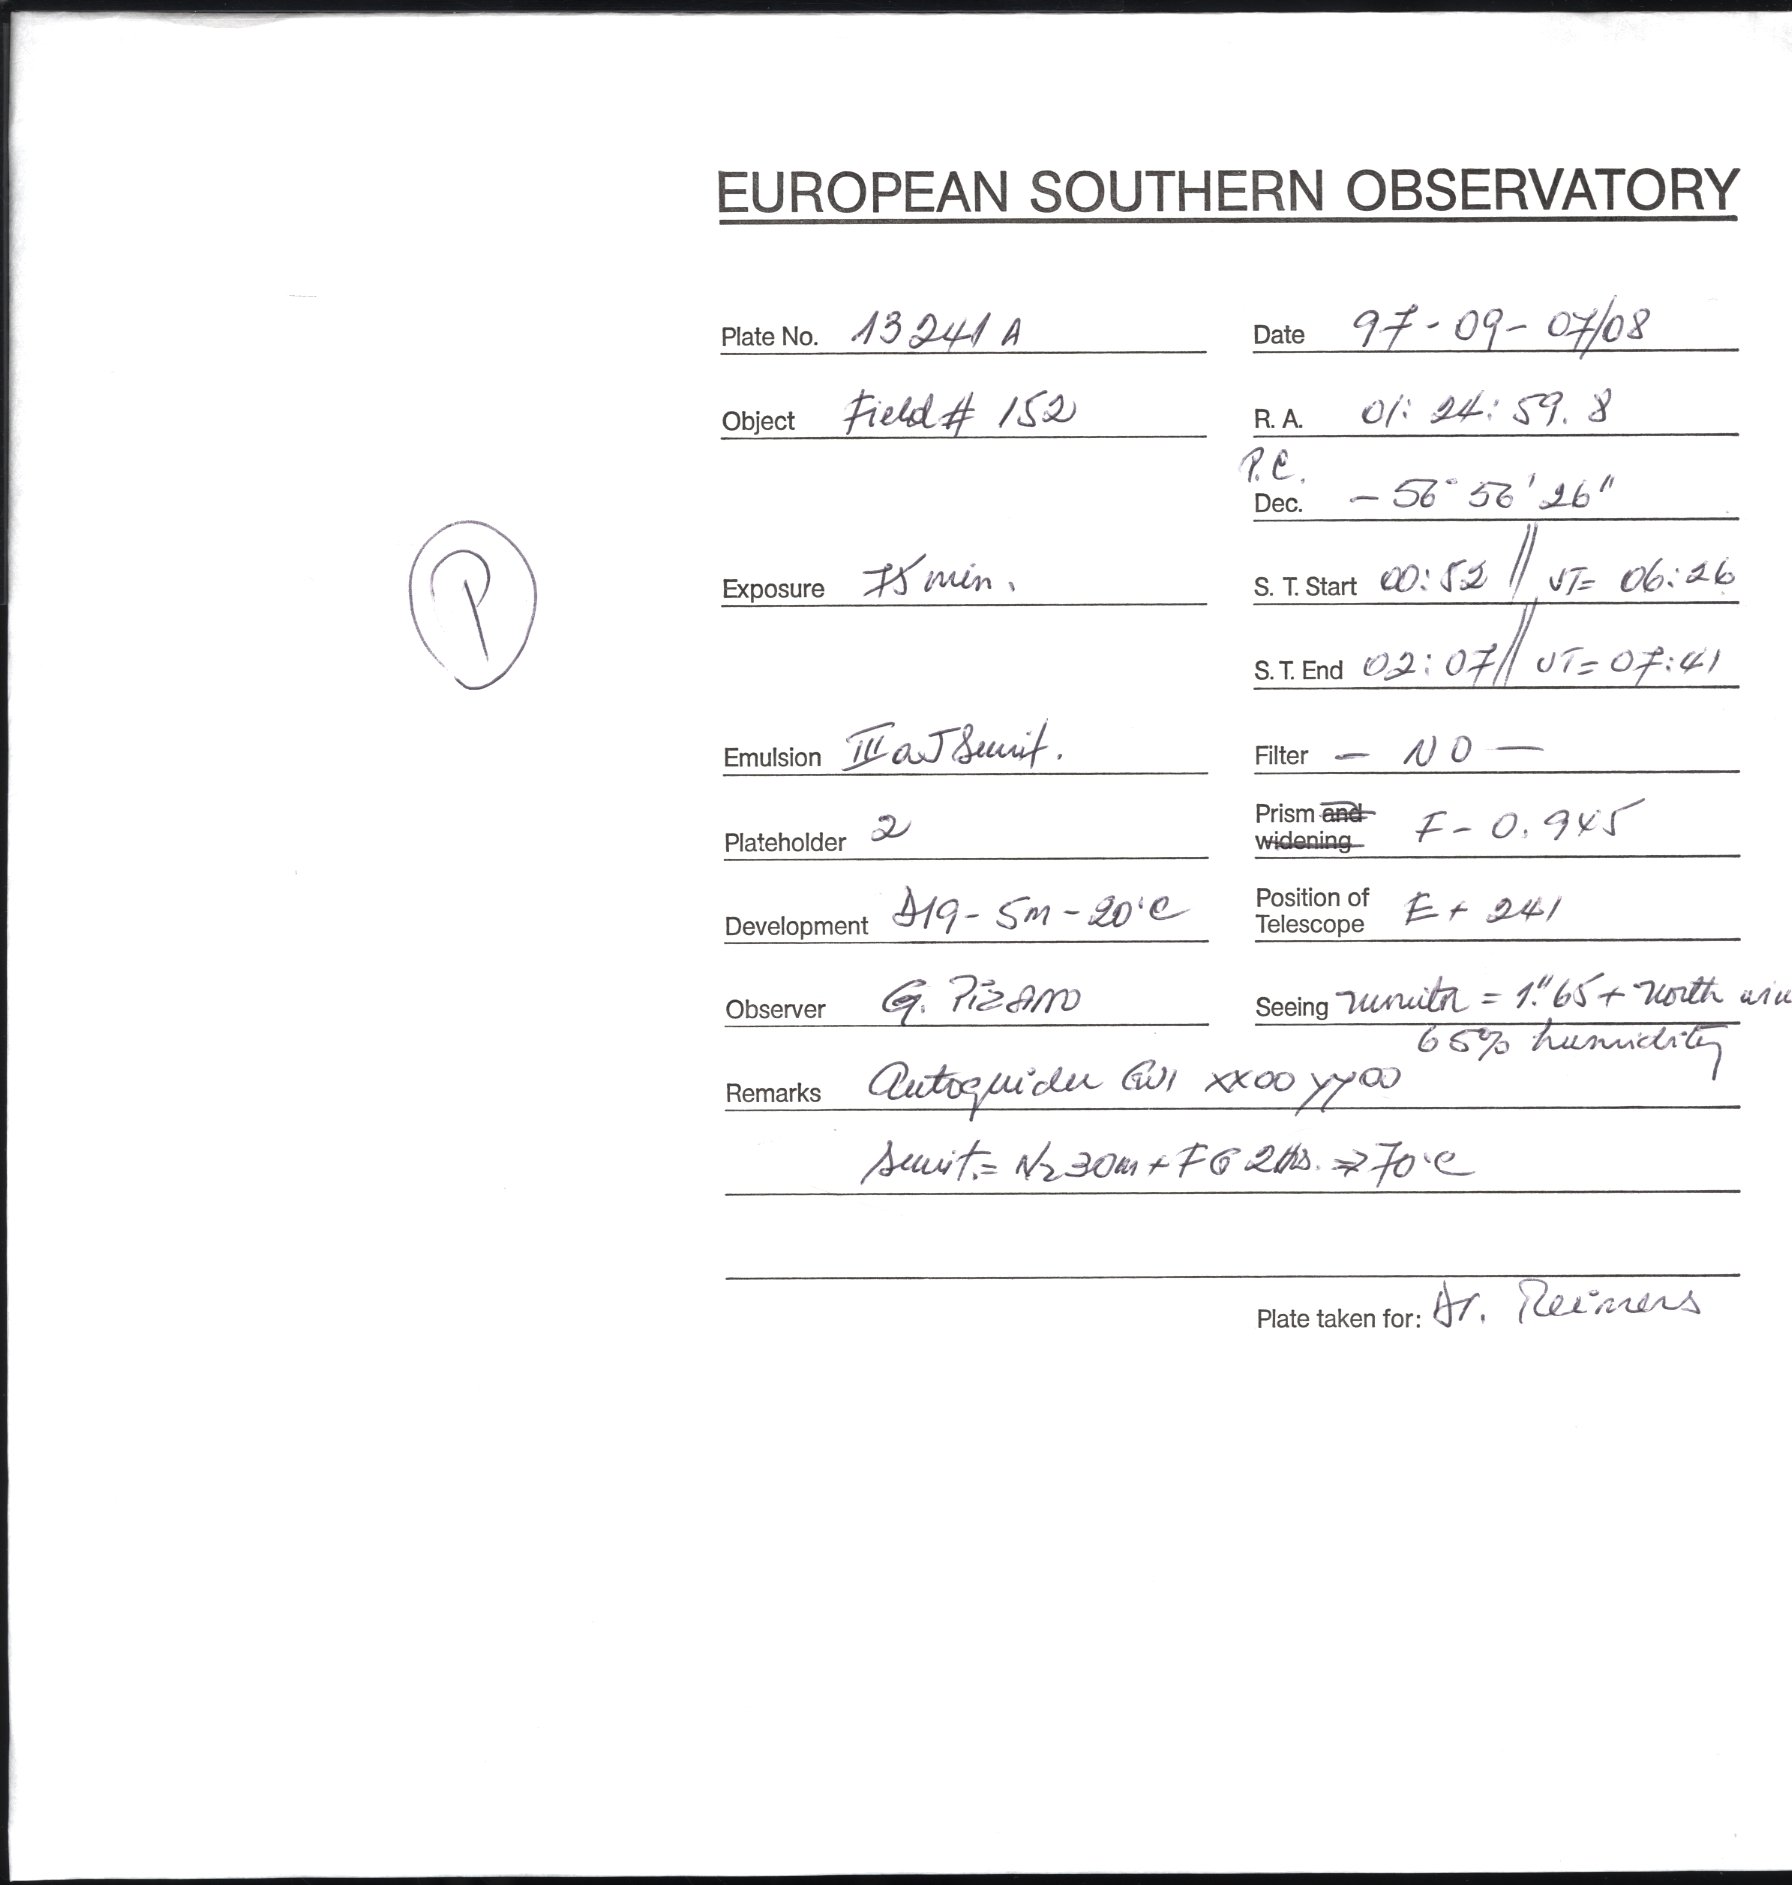 EUROPEAN SOUTHERN OBSERVATORY
Plate No. 13241 A Date 97-09-07/08
Object Field # 152 R. A. 01: 24: 59. 8
P.C.
Dec. - 56° 56' 26"
P
Exposure 75 min. S. T. Start 00:52 // UT= 06:26
S. T. End 02:07 // UT= 07:41
Emulsion III aJ Sensit. Filter — NO —
Plateholder 2 Prism and widening F - 0.945
Development D19 - 5m - 20°C Position of Telescope E + 241
Observer G. Pizarro Seeing monitor = 1."65 + North win
65% humidity
Remarks Autoguider xx00 yy00
Sensit.= N2 30m + FG 2hs. => 70°C
Plate taken for: Dr. Reimers